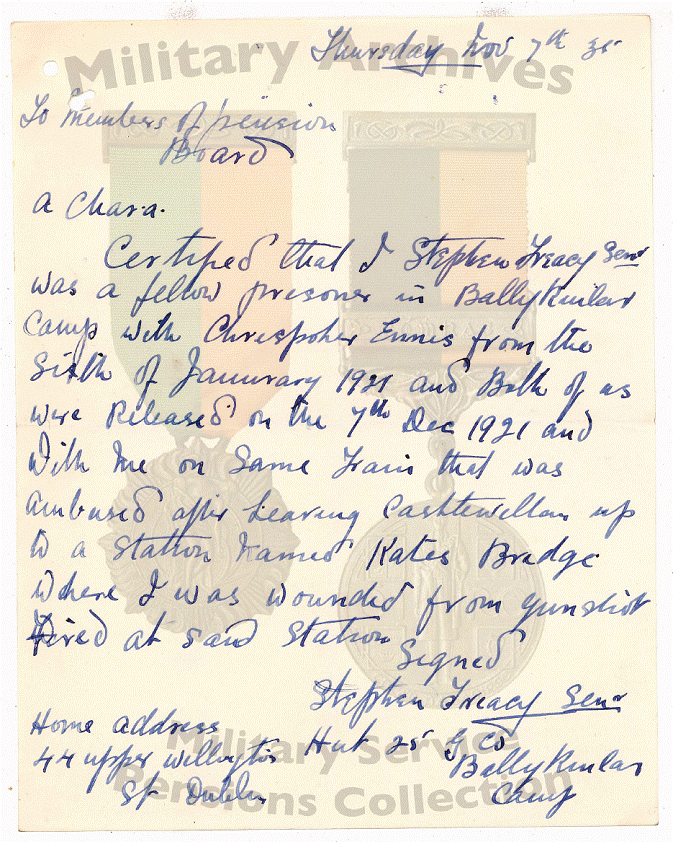 Military Archives
Thursday Nov 7th 35
To Members of pension
Board
a Chara.
Certified that I Stephen Treacy Senr
was a fellow prisoner in Ballykinlar
Camp with Chrispoher Ennis from the
Sixth of Januarary 1921 and Both of us
were Released on the 7th Dec 1921 and
With me on Same Train that was
ambused after Leaving Castlewellan up
to a Station Named Kates Bredge
Where I was wounded from gunshot
Fired at said Station
Signed
Stephen Treacy Senr
Home address
44 upper Wellington Hut 25 G Co
St Dublin Ballykinlar
Camp
Military Service
Pensions Collection